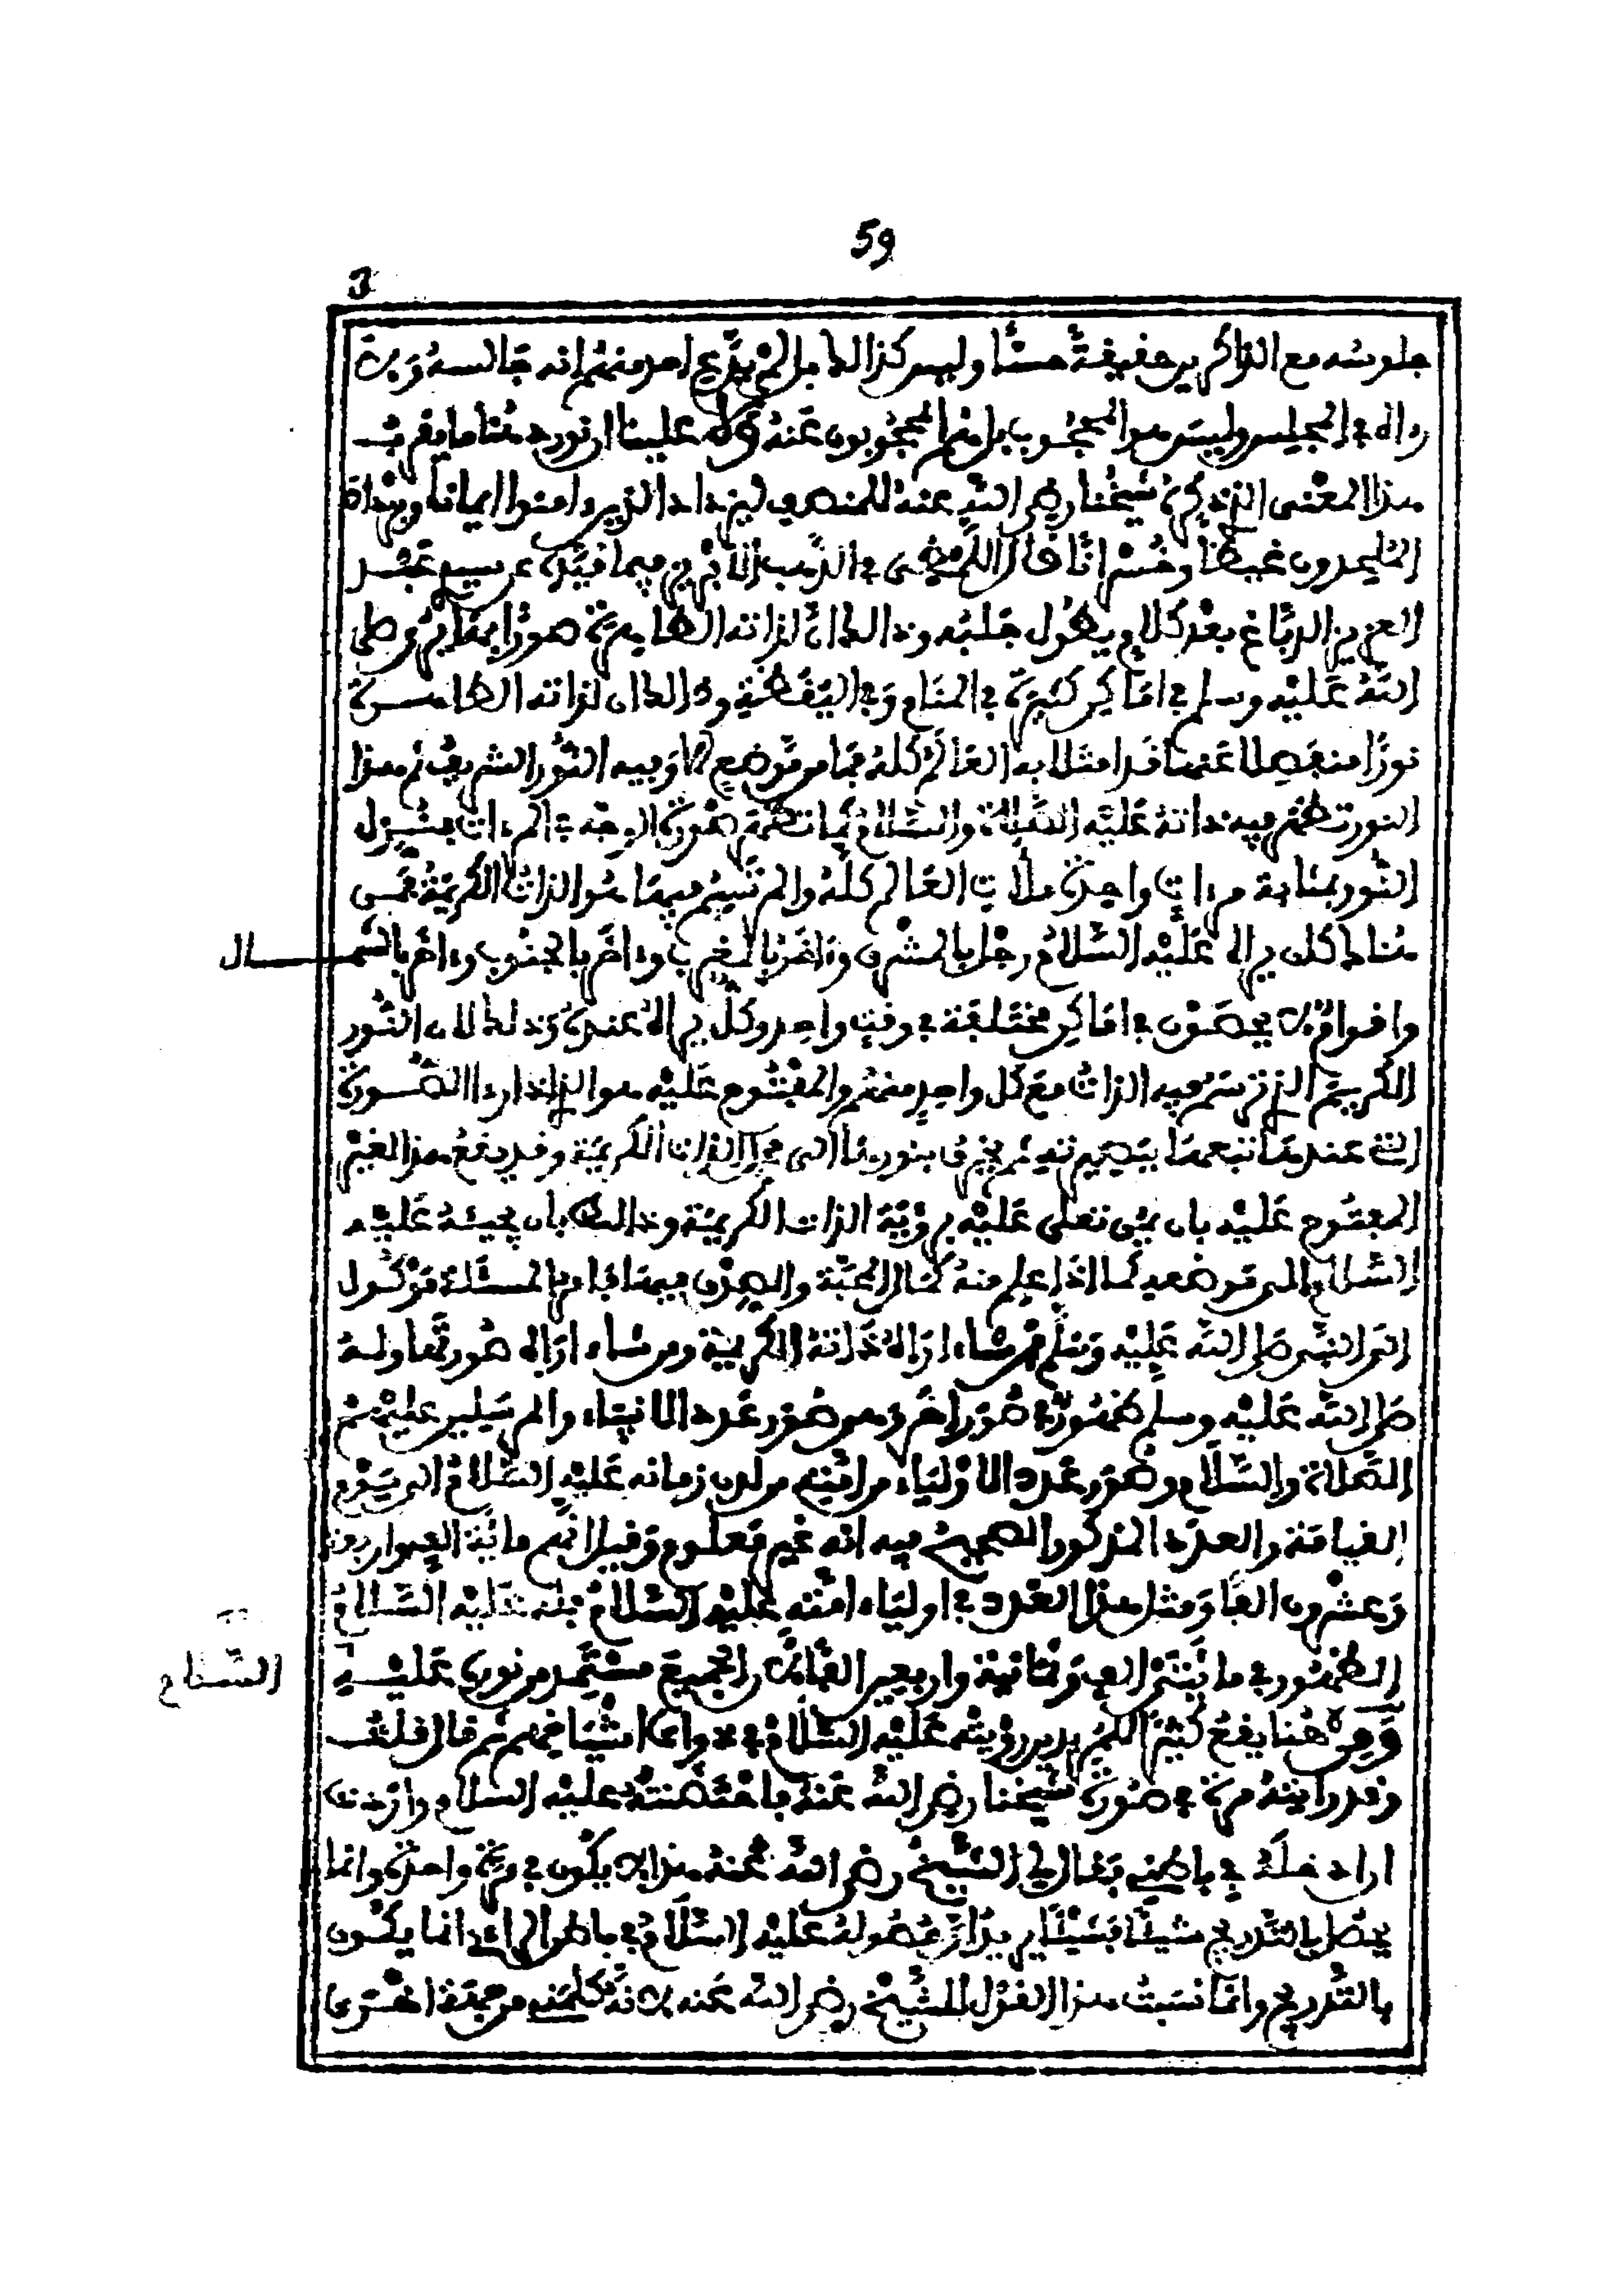 59
جلوسه مع الذاكرين حقيقةً حسّا وليس كذالك بل لم يدَّع احد منهم انه جَالسه وَ
رءاه في المجلس وليسَ هو المحجُوب بل هم المحجُوبون عَنهُ وَلا علينا ان نورد هُنا ما يقرب
هذا المعْنى الذي ذكرهُ شيخُنا رضي الله عنهُ للمنصف ليزداد الذين ءامنوا ايمانا ويزْداد
الملحدون غيظا وخُسْرانا قال اللَّمَطى في الذَّهب الابْريز فيما قيّده عن سيدي عَبْد
العزيز الدبّاغ بعْد كلام يطُول جَلبُه وذالك انَّ لذاته الطاهرة صورًا بها يُرى صلى
اللهُ عَلَيْه وسلم في امَاكن كثيرَة في المنَام وَفي اليَقَظة وذالك ان لذاته الطاهرة
نورًا منفَصِلا عَنها قد امتلأ به العَالَم كلهُ فمَا من مَوْضعٍ الا وَفيه النُّور الشريف ثم هذا
النور تظهَر فيه ذاتهُ عَليْه الصَّلاة والسَّلامُ كما تظهَر صُورَة الوجْه في المرءات فتنزل
النُّور بمثابة مرءاتٍ واحدَة ملأتِ العَالم كلهُ والمرتَسِم فيهَا هُوَ الذاتُ الكريمَة فمن
هُنا كان يراه عَليْه السَّلامُ رجُل بالمشرق وءاخَر بالمغرب وءاخَر بالجنُوب وءاخَر بالشمال
واقوام لا يحصَوْن في امَاكن مختَلفَة في وقتٍ واحدٍ وكلّ يراهُ عندهُ وَذلك لان النُّور
الكريمَ الذي ترتسم فيه الذاتُ معَ كل واحدٍ منهُم والمفْتُوح عَليْه هو الذي اذا رءا الصُّورة
التي عندهُ تبعهَا ببَصيرته ثم يخرق بنورها الى محل الذات الكريمَة وقد يقعُ هذا لغيْر
المفتُوح عَليْه بان يمنَّ تعلى عَليْه برؤيَة الذات الكريمَة وذالك بان يجيئهُ عَليْه
السَّلام الى مَوضعه كما اذا علم منهُ كمَال المحبَّة والصدْق فيهَا فامر المسئلة مَوْكُول
الى النبي صلى الله عَليْه وسَلم فمن شاء اراهُ ذَاتهُ الكريمَة ومن شاء اراه صُورتهَا ولهُ
صَلى اللهُ عَليْه وسلم ظهُورٌ في صُوَر اخرَى وهي صُوَر عَدد الانبيَاء والمرسَلين عليْهمُ
الصَّلاة والسَّلام وصُوَر عَدد الاوْليَاء من امَّته من لدن زمانه عَليْه السَّلامُ الى يَوْم
القيامَة والعدَد المذكور الصحيح فيه انه غير مَعلوم وَقيل انَّهم مائة الف واربعة
وَعشرون الفًا وَمثل هذا العَدد في اوليَاء امّته عَليْه السَّلامُ فلهُ عَليْه السَّلامُ
الظهُور في مائتَيْ الف وَثمانية واربعين الفًا لانَّ الجميعَ مستَمِد من نوره عَليْهِ
السَّلام
وَمن هُنا يقعُ كثيرًا للمُريدين رؤْيتُه عَليْه السَّلامُ في ذوات اشْيَاخهم ثم قال قلتُ
وقد رايتهُ مرَةً في صُورَة شيخنا رضي اللهُ عَنْهُ فاحْتَضنتهُ عليْه السلام وارَدتُ
ان ادخلَهُ في باطني فقال لي الشَّيْخُ رضي اللهُ عَنهُ هذا لا يكُون في مرَّة واحدَة وانما
يحصُل بالتَّدريج شيئًا فشَيْئًا يريدُ انَّ دخُولهُ عليْه السَّلامُ في باطن الراءى انما يكُون
بالتَّدريج وانَّما نسَبتُ هذا القوْل للشيْخ رضي اللهُ عَنه لانَّهُ كلمَني من جهَة اخْرى